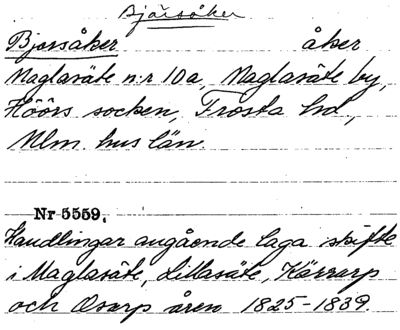 Bjärsåker
Bjersåker åker
Maglasäte n:r 10a, Maglasäte by,
Höörs socken, Frosta hd,
Mlm. hus län.
Nr 5559.
Handlingar angående laga skifte
i Maglasäte, Lillasäte, Kärrarp
och Osarp åren 1825-1839.